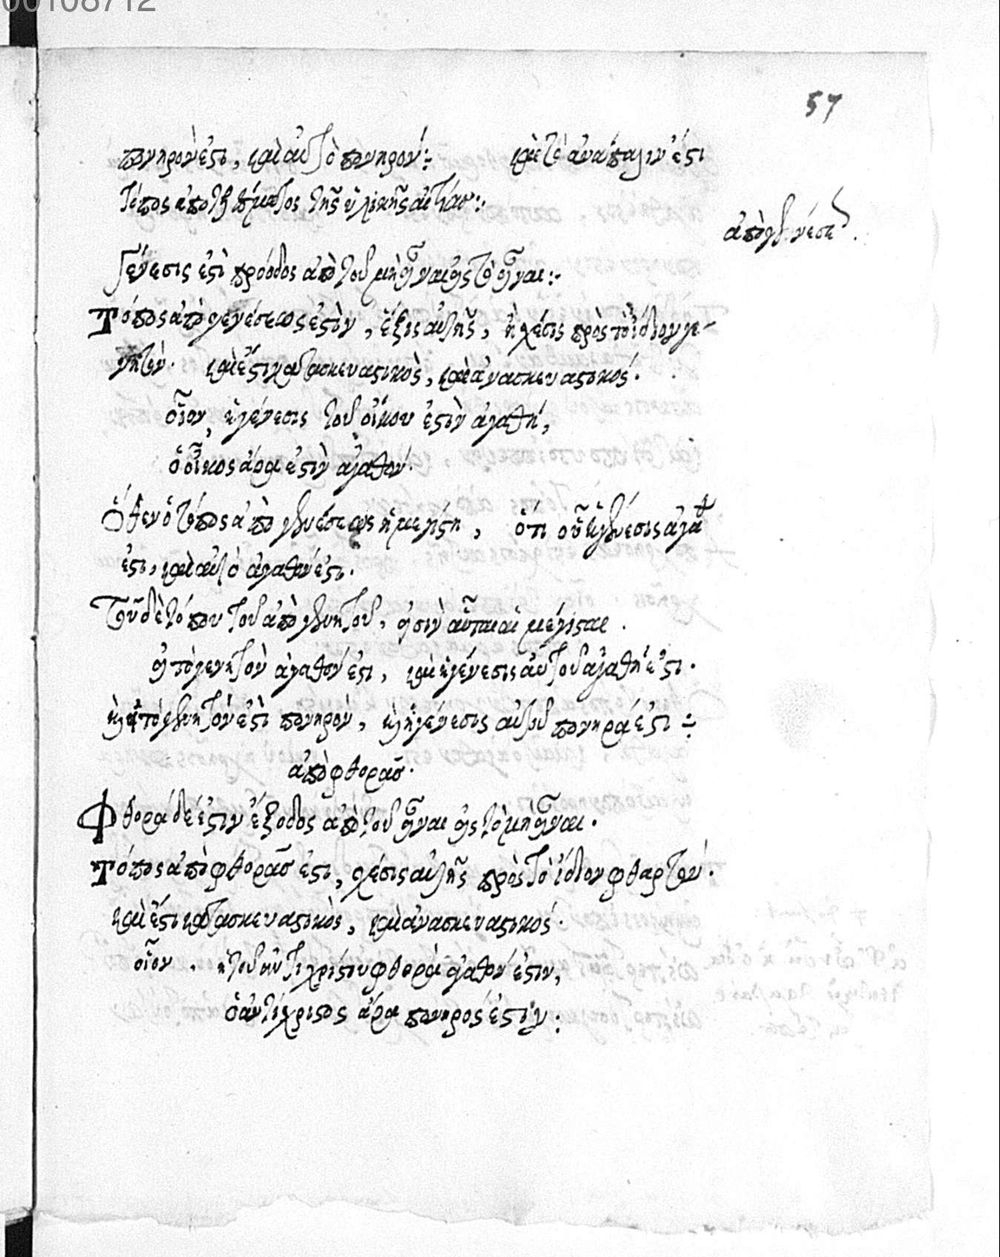 00108712
57
πονηρόν ἐστι, καὶ αὐτὸ πονηρόν: καὶ τὸ ἀνάπαλιν ἐστι
Τόπος ἀπὸ τῆς ὑλικῆς αἰτίας:
ἀπὸ γενέσεως.
Γένεσις ἐστὶ πρόοδος ἀπὸ τοῦ μὴ εἶναι εἰς τὸ εἶναι:
Τόπος ἀπὸ γενέσεως ἐστὶν, ἕξις αὐτῆς, ἢ σχέσις πρὸς τὸ ἴδιον γε-
νητόν. καὶ ἔστι κατασκευαστικὸς, καὶ ἀνασκευαστικός.
οἷον, ἡ γένεσις τοῦ οἴκου ἐστὶν ἀγαθή,
ὁ οἶκος ἄρα ἐστὶν ἀγαθόν.
Ὅθεν ὁ τόπος ἀπὸ γενέσεως ἡ μεγίστη, ὅτι οὗ ἡ γένεσις ἀγαθή
ἐστι, καὶ αὐτὸ ἀγαθόν ἐστι.
Τοῦ δὲ τόπου τοῦ ἀπὸ γενητοῦ, εἰσὶν αὗται αἱ μέγισται.
εἰ τὸ γενητὸν ἀγαθόν ἐστι, καὶ ἡ γένεσις αὐτοῦ ἀγαθή ἐστι.
καὶ εἰ τὸ γενητόν ἐστὶ πονηρὸν, καὶ ἡ γένεσις αὐτοῦ πονηρά ἐστι:
ἀπὸ φθορᾶς.
Φθορά δέ ἐστιν ἔξοδος ἀπὸ τοῦ εἶναι εἰς τὸ μὴ εἶναι.
Τόπος ἀπὸ φθορᾶς ἐστι, σχέσις αὐτῆς πρὸς τὸ ἴδιον φθαρτόν.
καὶ ἔστι κατασκευαστικὸς, καὶ ἀνασκευαστικός.
οἷον, ἡ τοῦ ἀντιχρίστου φθορὰ ἀγαθόν ἐστιν,
ὁ ἀντίχριστος ἄρα πονηρός ἐστιν: